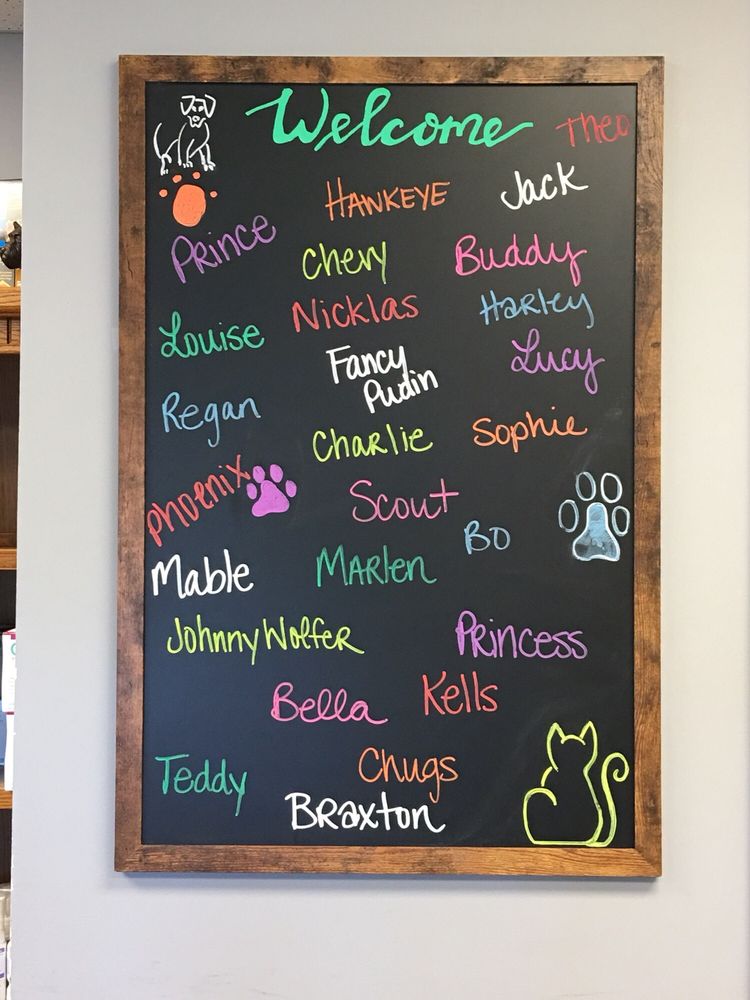 Welcome
Theo
HAWKEYE
Jack
Prince
Chevy
Buddy
Nicklas
Harley
Louise
Fancy
Pudin
Lucy
Regan
Charlie
Sophie
Phoenix
Scout
Bo
Mable
MARlen
Johnny Wolfer
Princess
Bella
Kells
Teddy
Chugs
Braxton